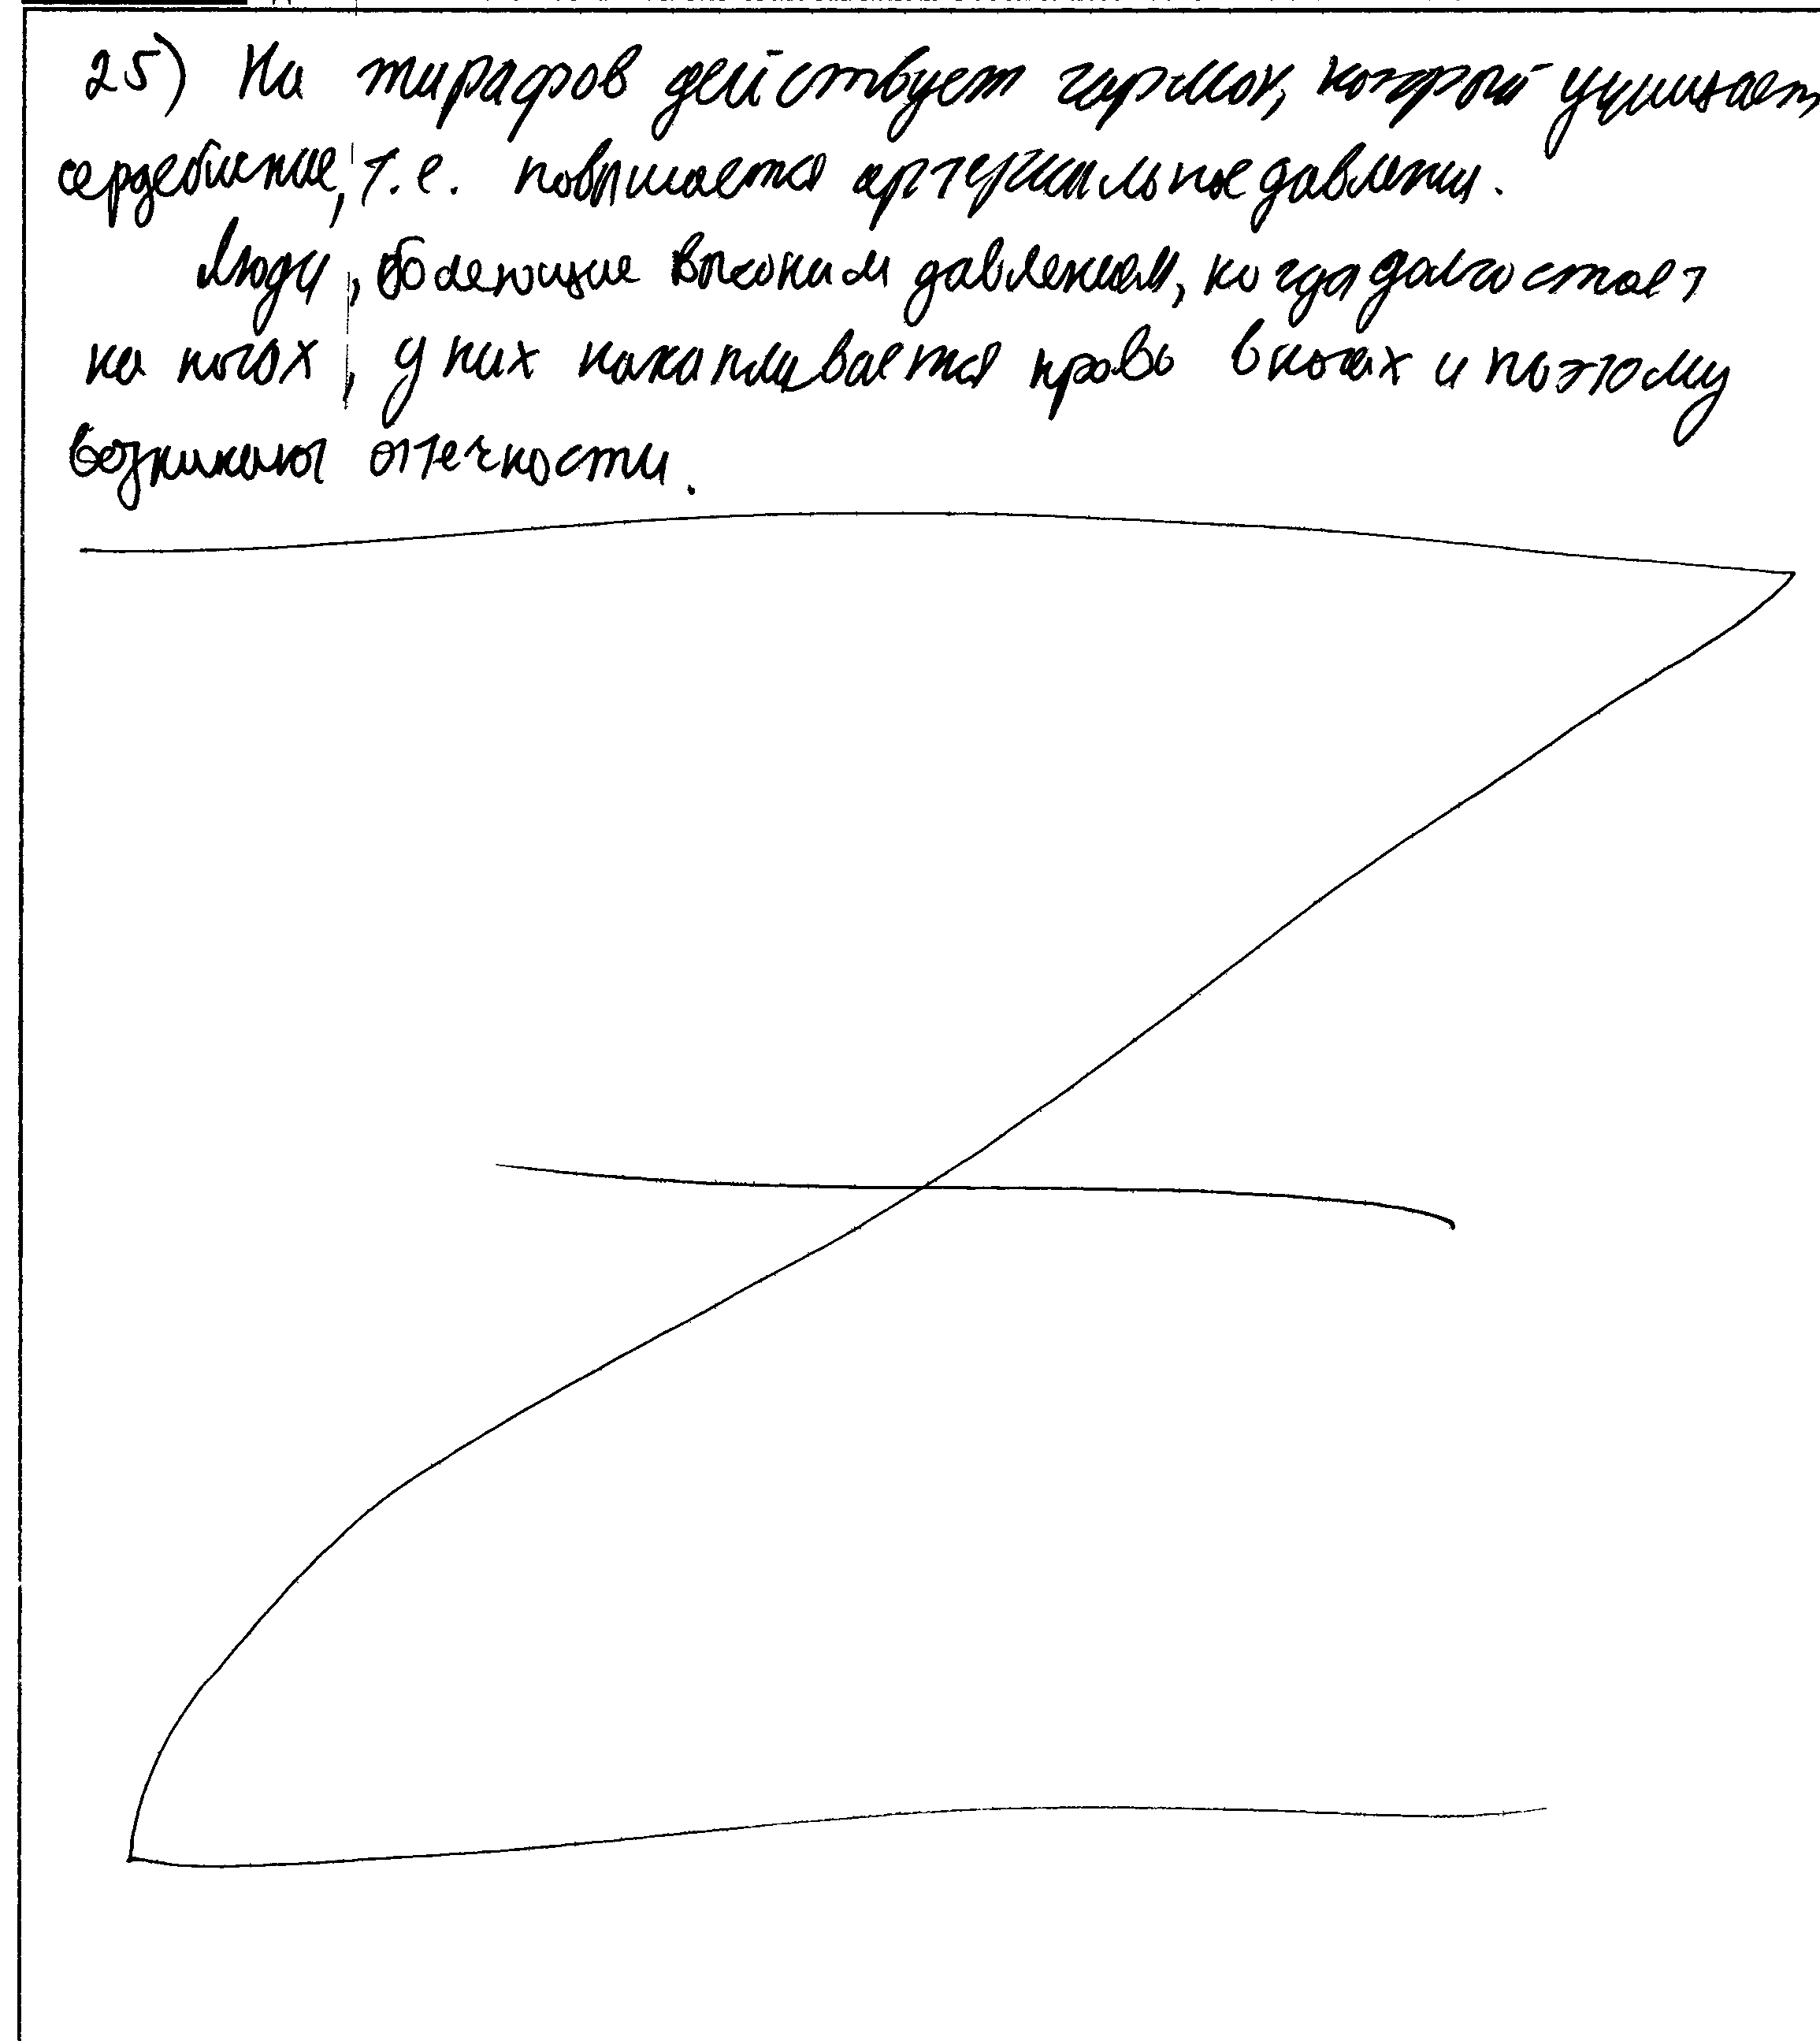 25) На жирафов действует гормон, который учищает
сердебиение, т.е. повышается артериальное давления.
Люди, болеющие высоким давлением, когда долго стоят
на ногах, у них накапливается кровь в ногах и поэтому
возникают отечности.